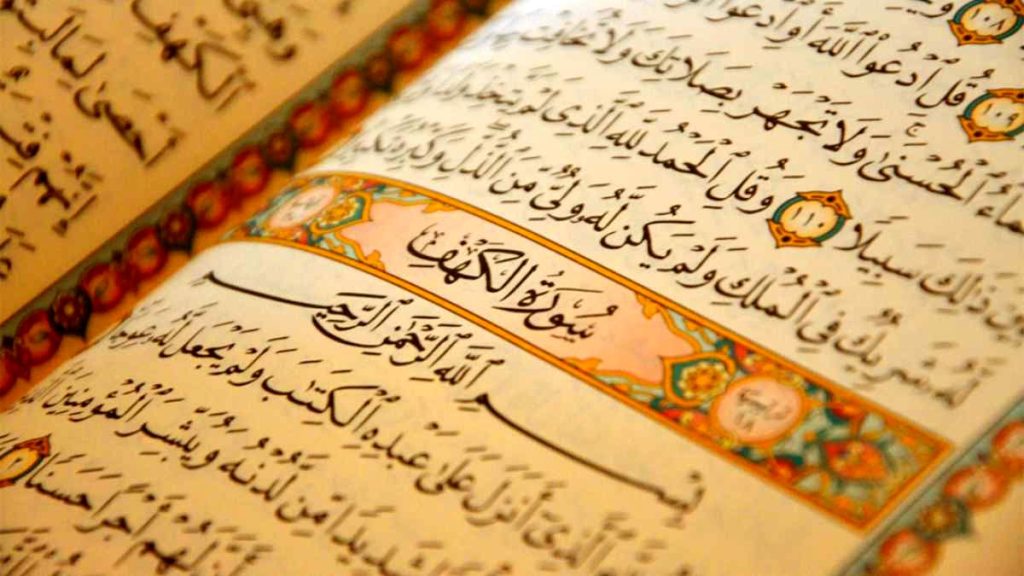 ١٠٨
١٠٩ قُلِ ٱدْعُوا۟ ٱللَّهَ أَوِ ٱدْعُوا۟
ٱلْحُسْنَىٰ وَلَا تَجْهَرْ بِصَلَاتِكَ وَلَا تُخَافِتْ
ذَٰلِكَ سَبِيلًا ١١٠ وَقُلِ ٱلْحَمْدُ لِلَّهِ ٱلَّذِى لَمْ يَتَّخِذْ وَلَدًا
لَّهُۥ شَرِيكٌ فِى ٱلْمُلْكِ وَلَمْ يَكُن لَّهُۥ وَلِىٌّ مِّنَ ٱلذُّلِّ وَكَبِّرْهُ تَكْبِيرًا
سُورَةُ ٱلْكَهْفِ
بِسْمِ ٱللَّهِ ٱلرَّحْمَٰنِ ٱلرَّحِيمِ
ٱلَّذِىٓ أَنزَلَ عَلَىٰ عَبْدِهِ ٱلْكِتَٰبَ وَلَمْ يَجْعَل لَّهُۥ عِوَجَا
شَدِيدًا مِّن لَّدُنْهُ وَيُبَشِّرَ ٱلْمُؤْمِنِينَ
لَهُمْ أَجْرًا حَسَنًا
ٱلْكَهْفِ
أَحْصَىٰ لِمَا